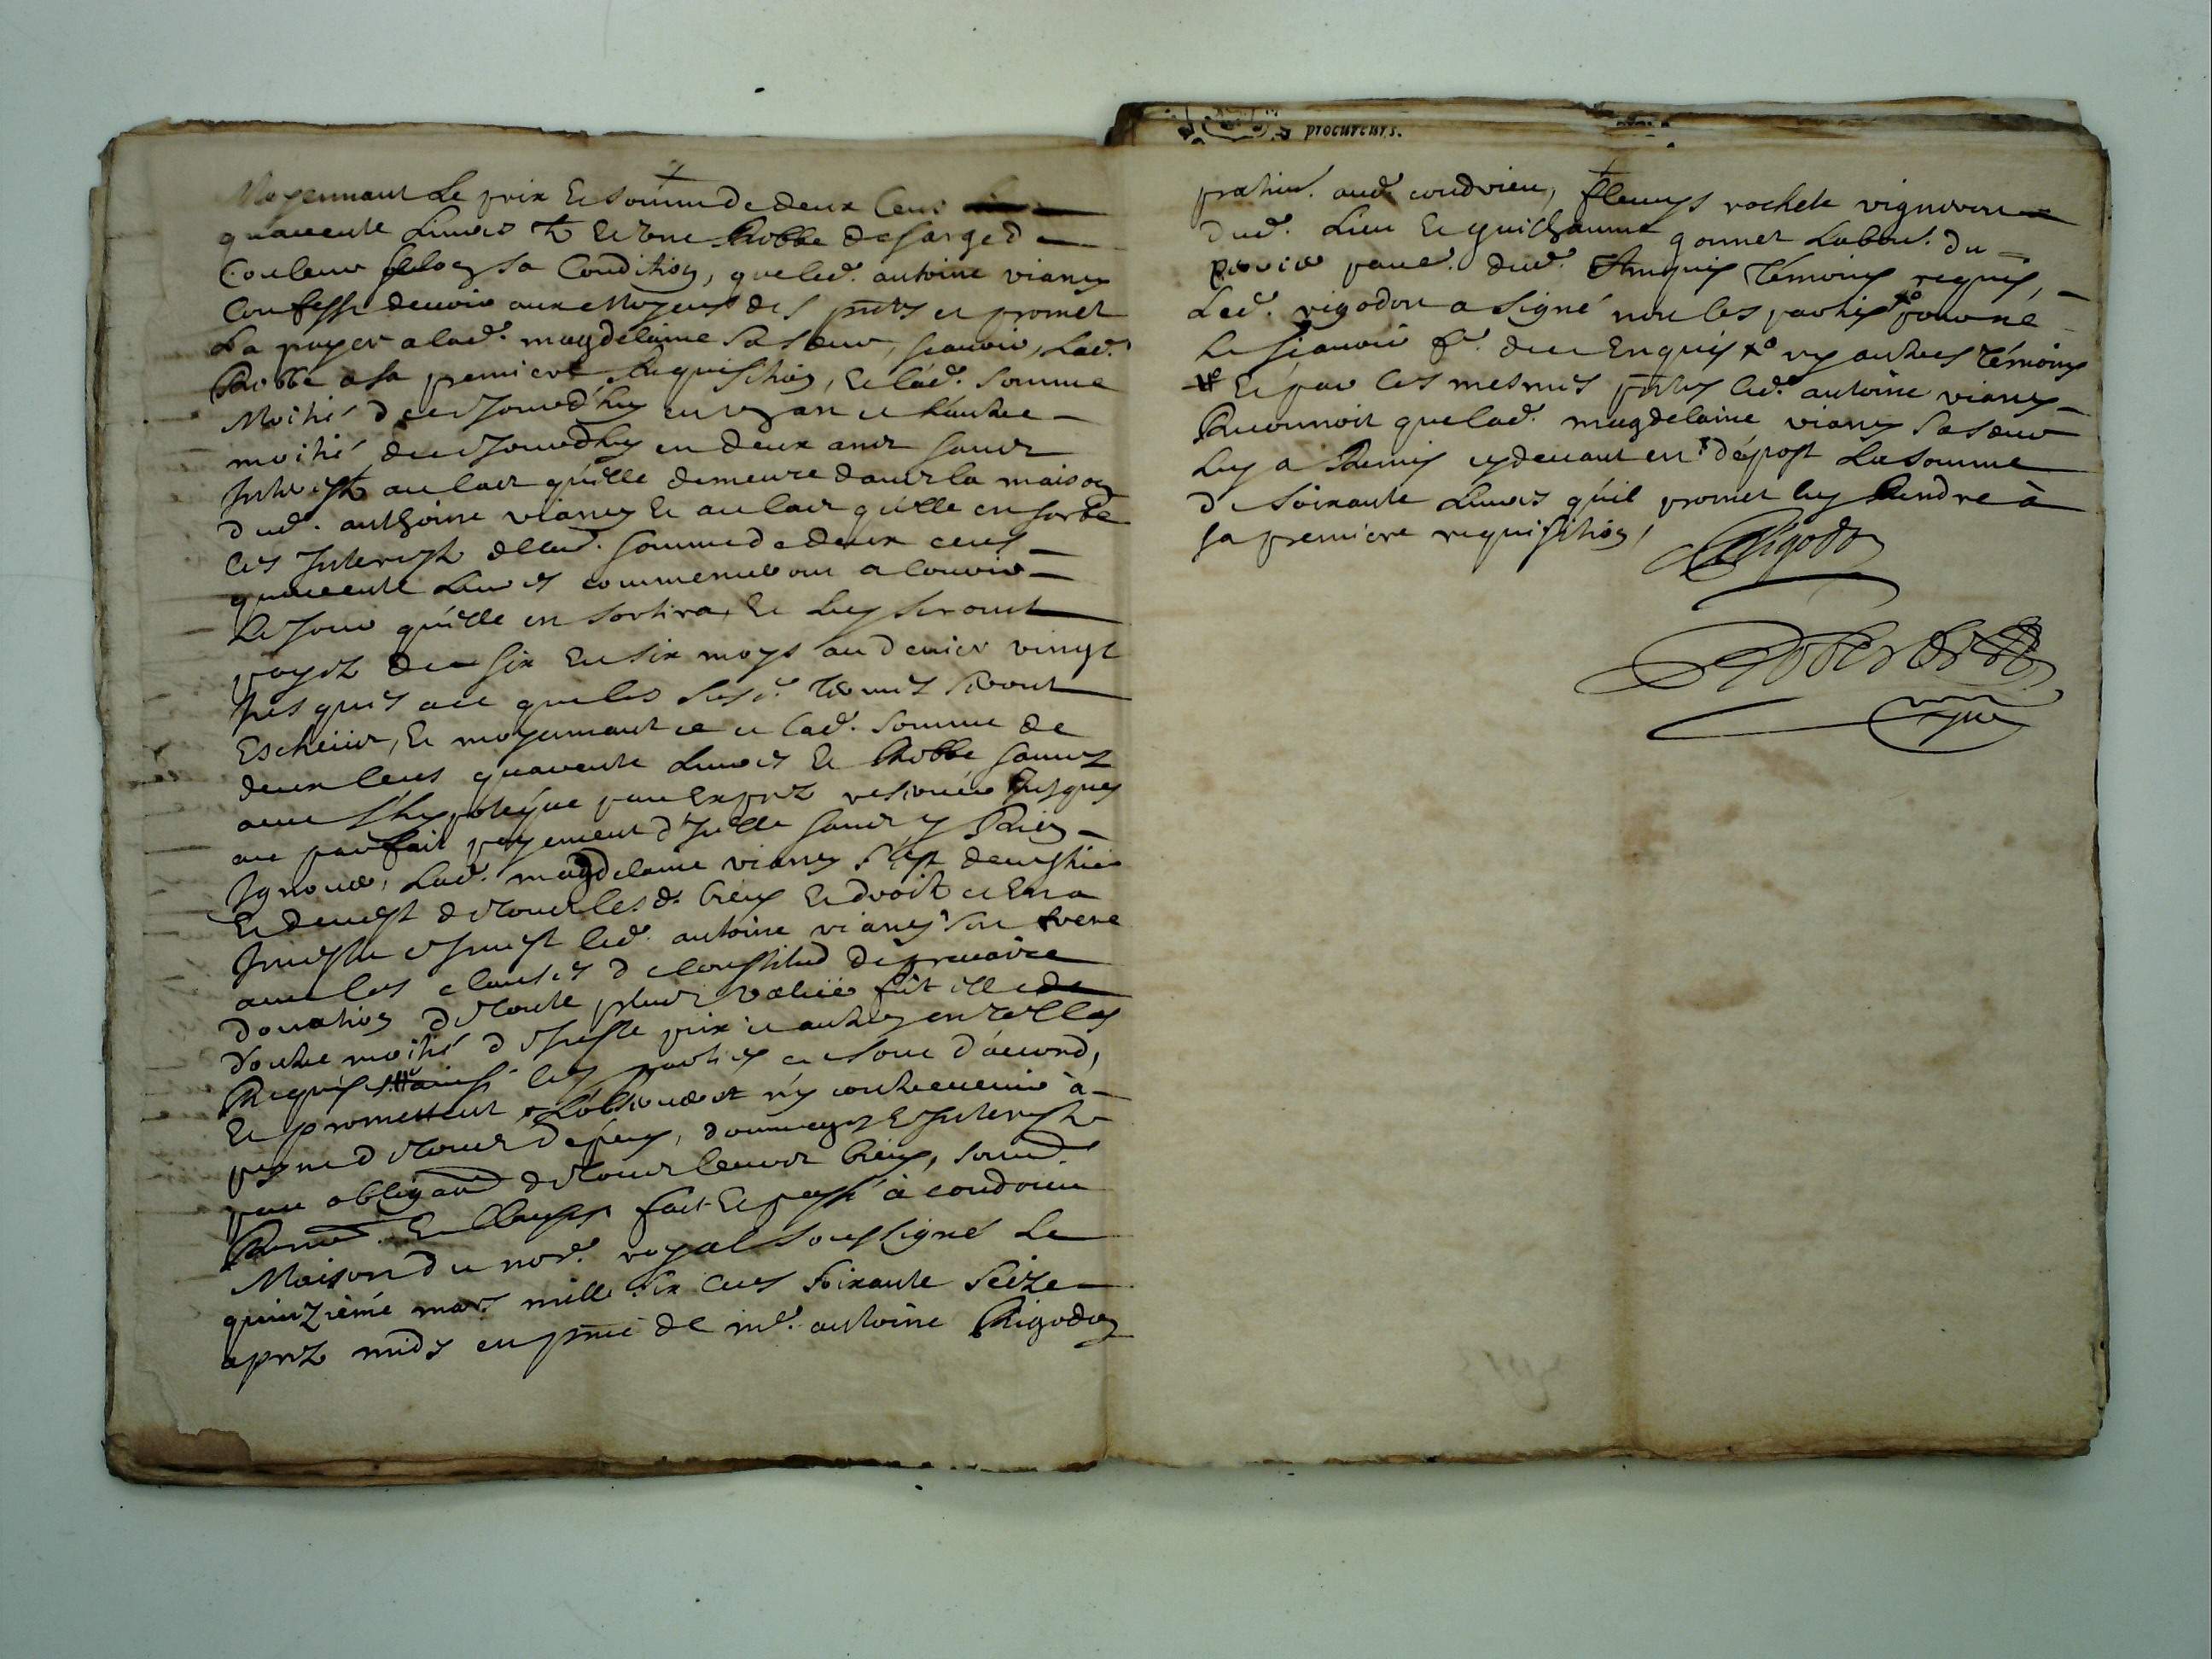 Moyennant Le prix Et somme de deux Cens
quarente Livres tz Et une Robbe de sarge de
Couleur selon sa Condition, que led. antoine vianey
Confesse devoir aux moyens des pntes et promet
La payer a lad. magdelaine sa soeur, scavoir, Lad.
Robbe a sa premiere Requisition, Et lad. somme
Moitié de ce Jourd'huy en un an et l'autre
moitié de ce Jourdhuy en deux ans sans
Interest au cas qu'elle demeure dans la maison
dud. anthoine vianey Et au cas qu'elle en sorte
les Interest de lad. somme de deux cens
quarente Livres commenceront a courir
Le Jour qu'elle en sortira, Et luy seront
payez de six en six moys au denier vingt
Jusques a ce que les susd. termes seront
Escheus, Et moyennant ce et lad. somme de
deux Cens quarente Livres Et Robbe sauvez
avec l'hypoteque par exprez reservée Jusques
au parfait payement d'Icelle sans y Rien
Ignover, Lad. magdelaine vianey s'est devestue
Et devest de tous lesd. biens Et droits et En a
Investu et Invest led. antoine vianey son frere
avec les clauses de Constitud de precaire
donation de toute plus valüe fut elle de
d'outre moitié de Juste prix et autres en telles
Requises # ainsi les parties en sont d'accord,
Et promettent L'observer et n'y contrevenir à
peyne de tous dépens, dommages Et Interests
par obligaon de tous leurs biens, soumd.
Renond. Et Clauses fait Et passé à condrieu
Maison du nore. royal soussigné Le
quinzième mars mille six Cens soixante seize
aprez midy en pnce de me. antoine Rigodon
pratin. aud. condrieu, fleurys rochete vigneron
dud. Lieu Et guilhaume gonnet Labour. du
dud. Temoins requis,
Led. rigodon a signé non les parties pour ne
Le scavoir de ce Enquis ny autres Témoins
# Et par les mesmes pntes led. antoine vianey
Reconnoit que lad. magdelaine vianey sa soeur
Luy a Remis cy devant en dépost La somme
de soixante Livres qu'il promet luy Rendre à
sa premiere requisition,
Rigodon
procureurs.